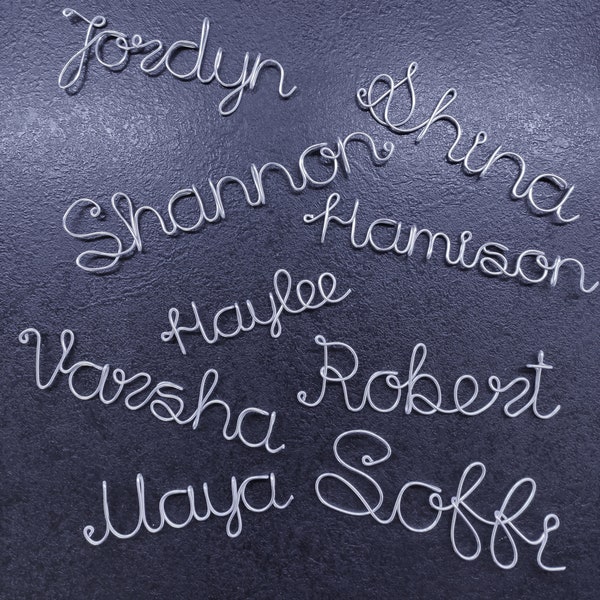 Jordyn
Shina
Shannon
Hamison
Haylee
Varsha
Robert
Maya
Soffi